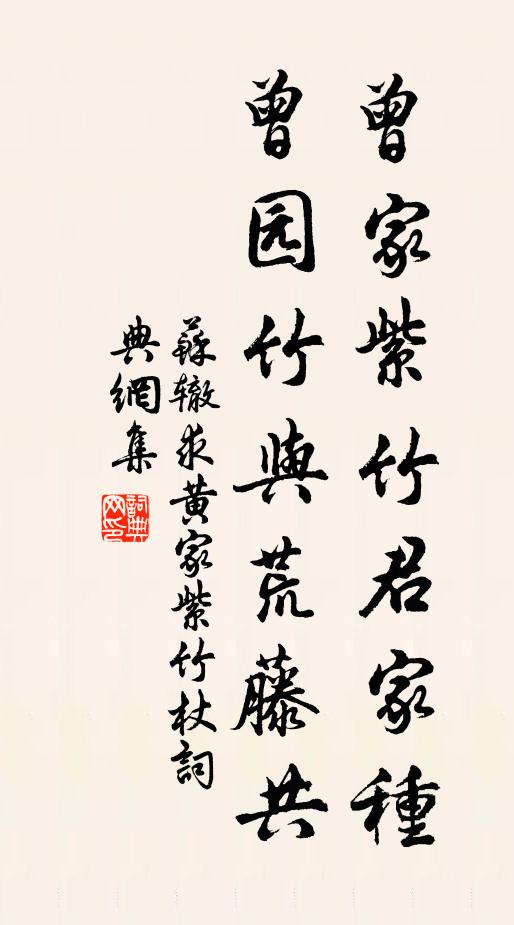 曾家紫竹君家種
曾园竹與荒藤共
蘇辙求黄家紫竹杖詞
典網集
詞典
网印